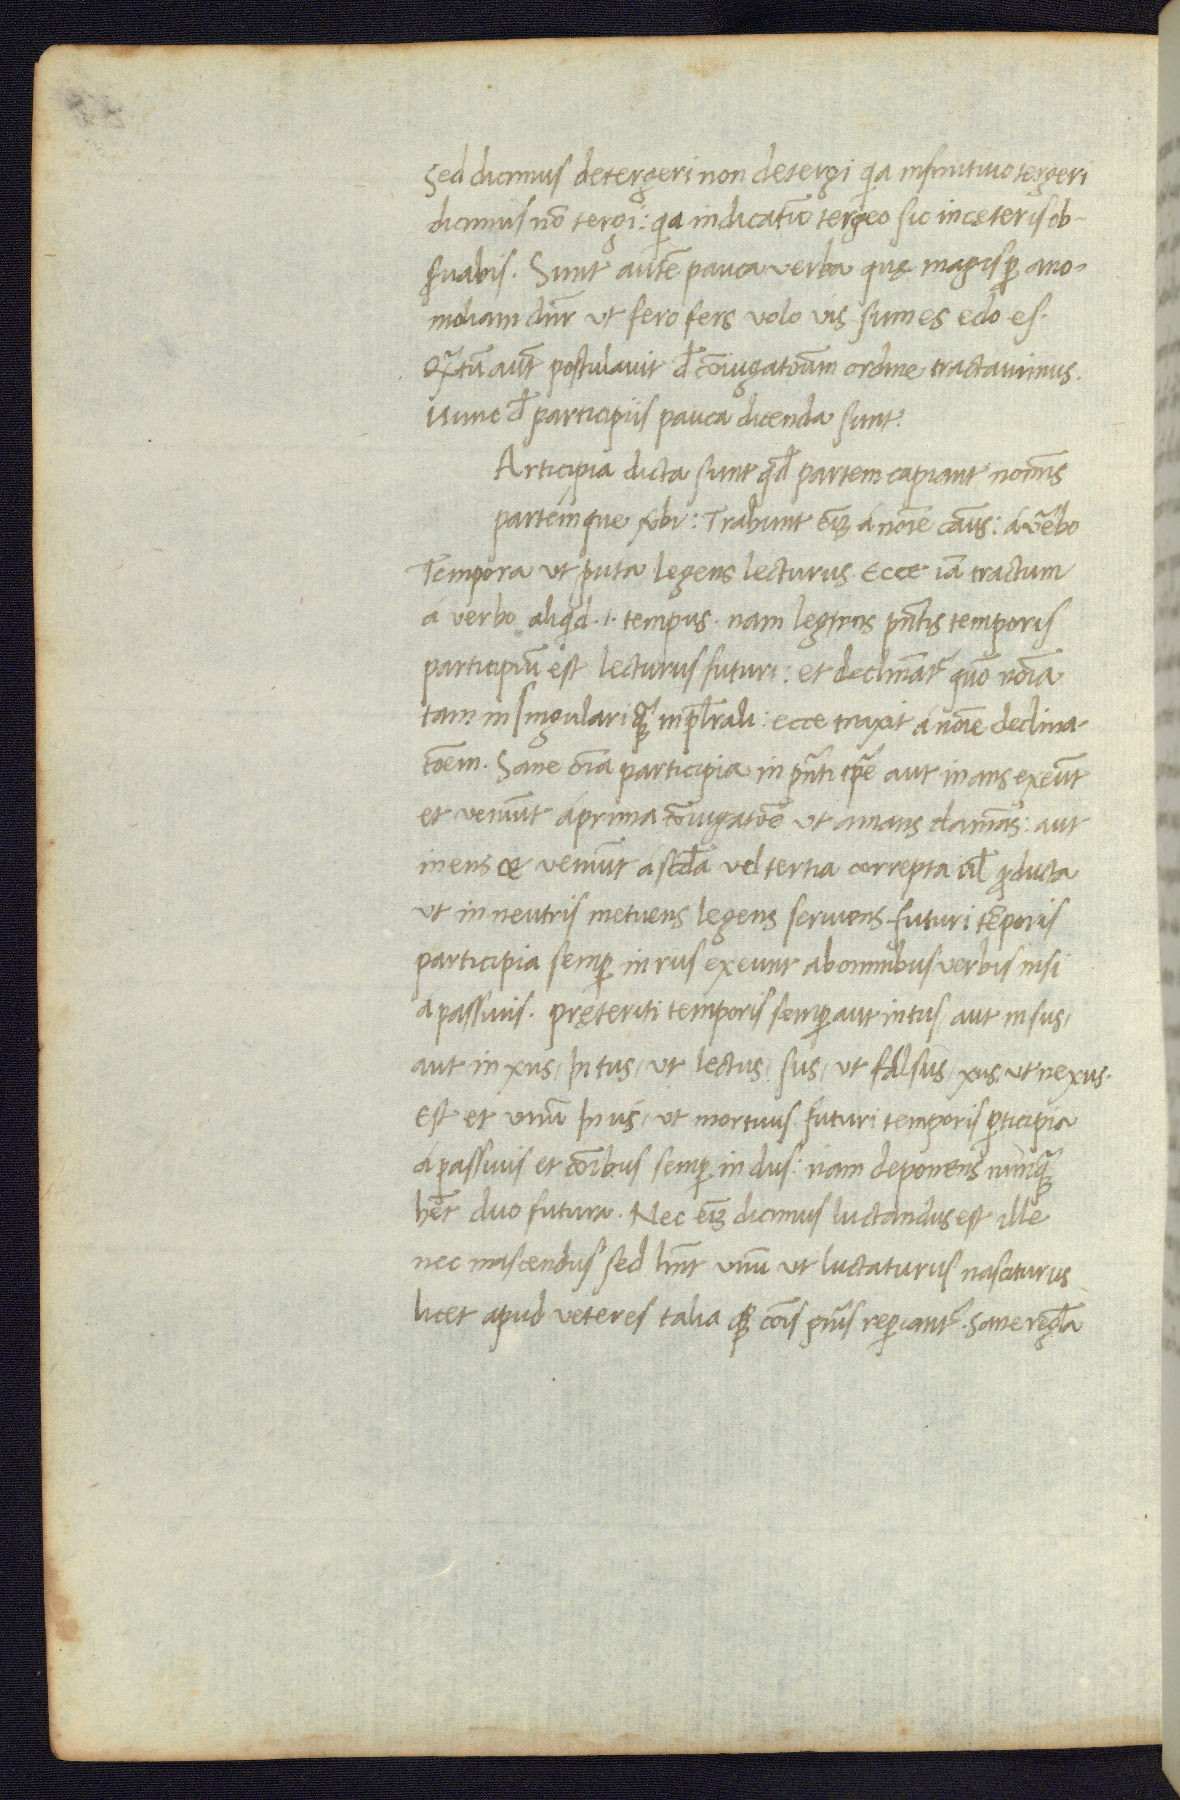 Sed dicimus detergeri non detergi qa infinitiuo tergeri
dicimus nō tergi: qa indicatīo tergeo sic in cęteris ob-
ẜuabis. Sunt autē pauca verba quę magis ꝑ ano-
moliam dnr̄ ut fero fers volo vis sum es edo es.
Qtū aut̄ postulauit đ cōiugatōum ordine tractauimus.
Nunc đ participiis pauca dicenda sunt.
Articipia dicta sunt qđ partem capiant nominīs
partemque ūbi: Trahunt eīꝫ á nōie cāus: á ūebo
Tempora ut puta legens lecturus. Ecce iā tractum
á verbo aliqd .i. tempus. nam legens pn̄tis temporis
participiū est lecturus futuri: et declināt quō nōia
tam in singulari ꝙ̄ in pl̄rali: ecce traxit á nōie declina-
tōem. Sane ōia participia in pn̄ti tꝑe aut in ans exeūt
et veniūt á prima cōiugatōe ut amans clamās: aut
in ens et veniūt á scđa vel tertia correpta ul̄ ꝓducta
ut in neutris metuens legens seruiens. futuri tēporis
participia semꝑ in rus exeunt ab omnibus verbis nisi
á passiuis. pręteriti temporis semꝑ aut in tus, aut in sus,
aut in xus, In tus, ut lectus, sus, ut falsus, xus, ut nexus.
Est et unū In us, ut mortuus. futuri temporis ꝑticipia
á passiuis et cōibus semꝑ in dus: nam deponens nunꝙ̄
hēt duo futura. Nec eīꝫ dicimus luctandus est ille
nec nascendus sed hn̄t unū ut luctaturus nasciturus
licet apud veteres talia ꝙ̄ cōis gn̄is reperiant̄. Sane regl̄a